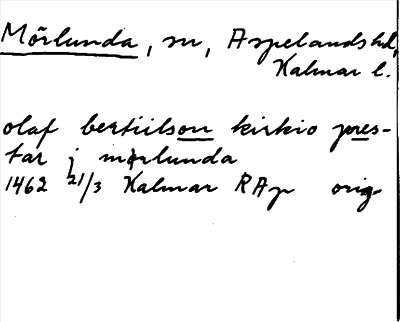 Mörlunda, sn, Aspelands hd,
Kalmar l.
olaf bertiilson kirkio pres-
tar j mørlunda
1462 21/3 Kalmar RAp orig.